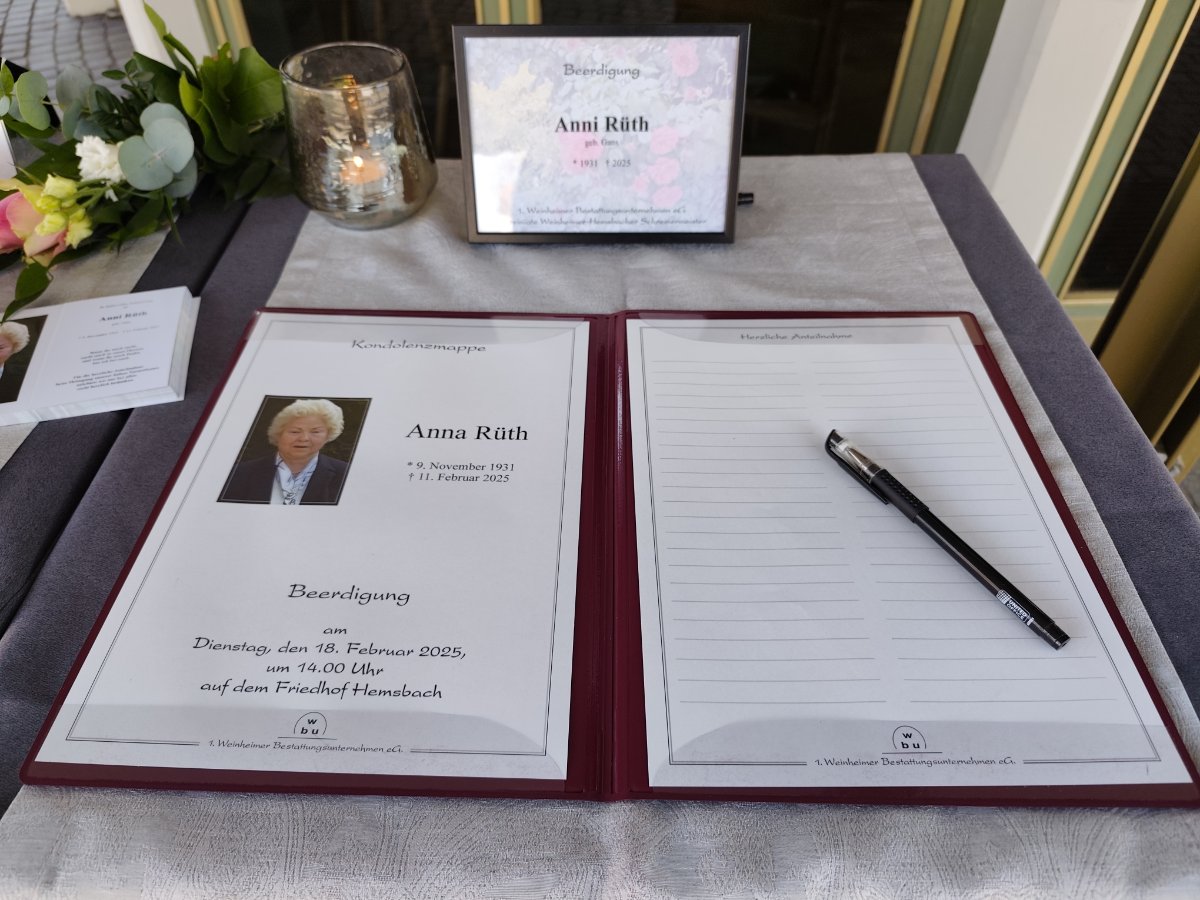 Beerdigung
Anni Rüth
* 1931 † 2025
1. Weinheimer Bestattungsunternehmen eG
Anni Rüth
Kondolenzmappe
Anna Rüth
* 9. November 1931
† 11. Februar 2025
Beerdigung
am
Dienstag, den 18. Februar 2025,
um 14.00 Uhr
auf dem Friedhof Hemsbach
w
bu
1. Weinheimer Bestattungsunternehmen eG.
Herzliche Anteilnahme
w
bu
1. Weinheimer Bestattungsunternehmen eG.